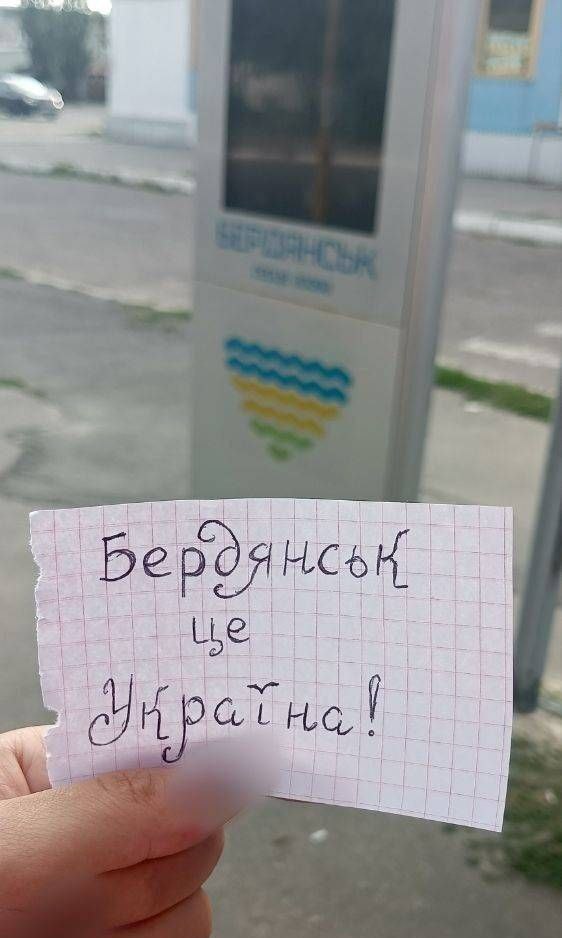 БЕРДЯНСЬК
Бердянськ
це
Україна!